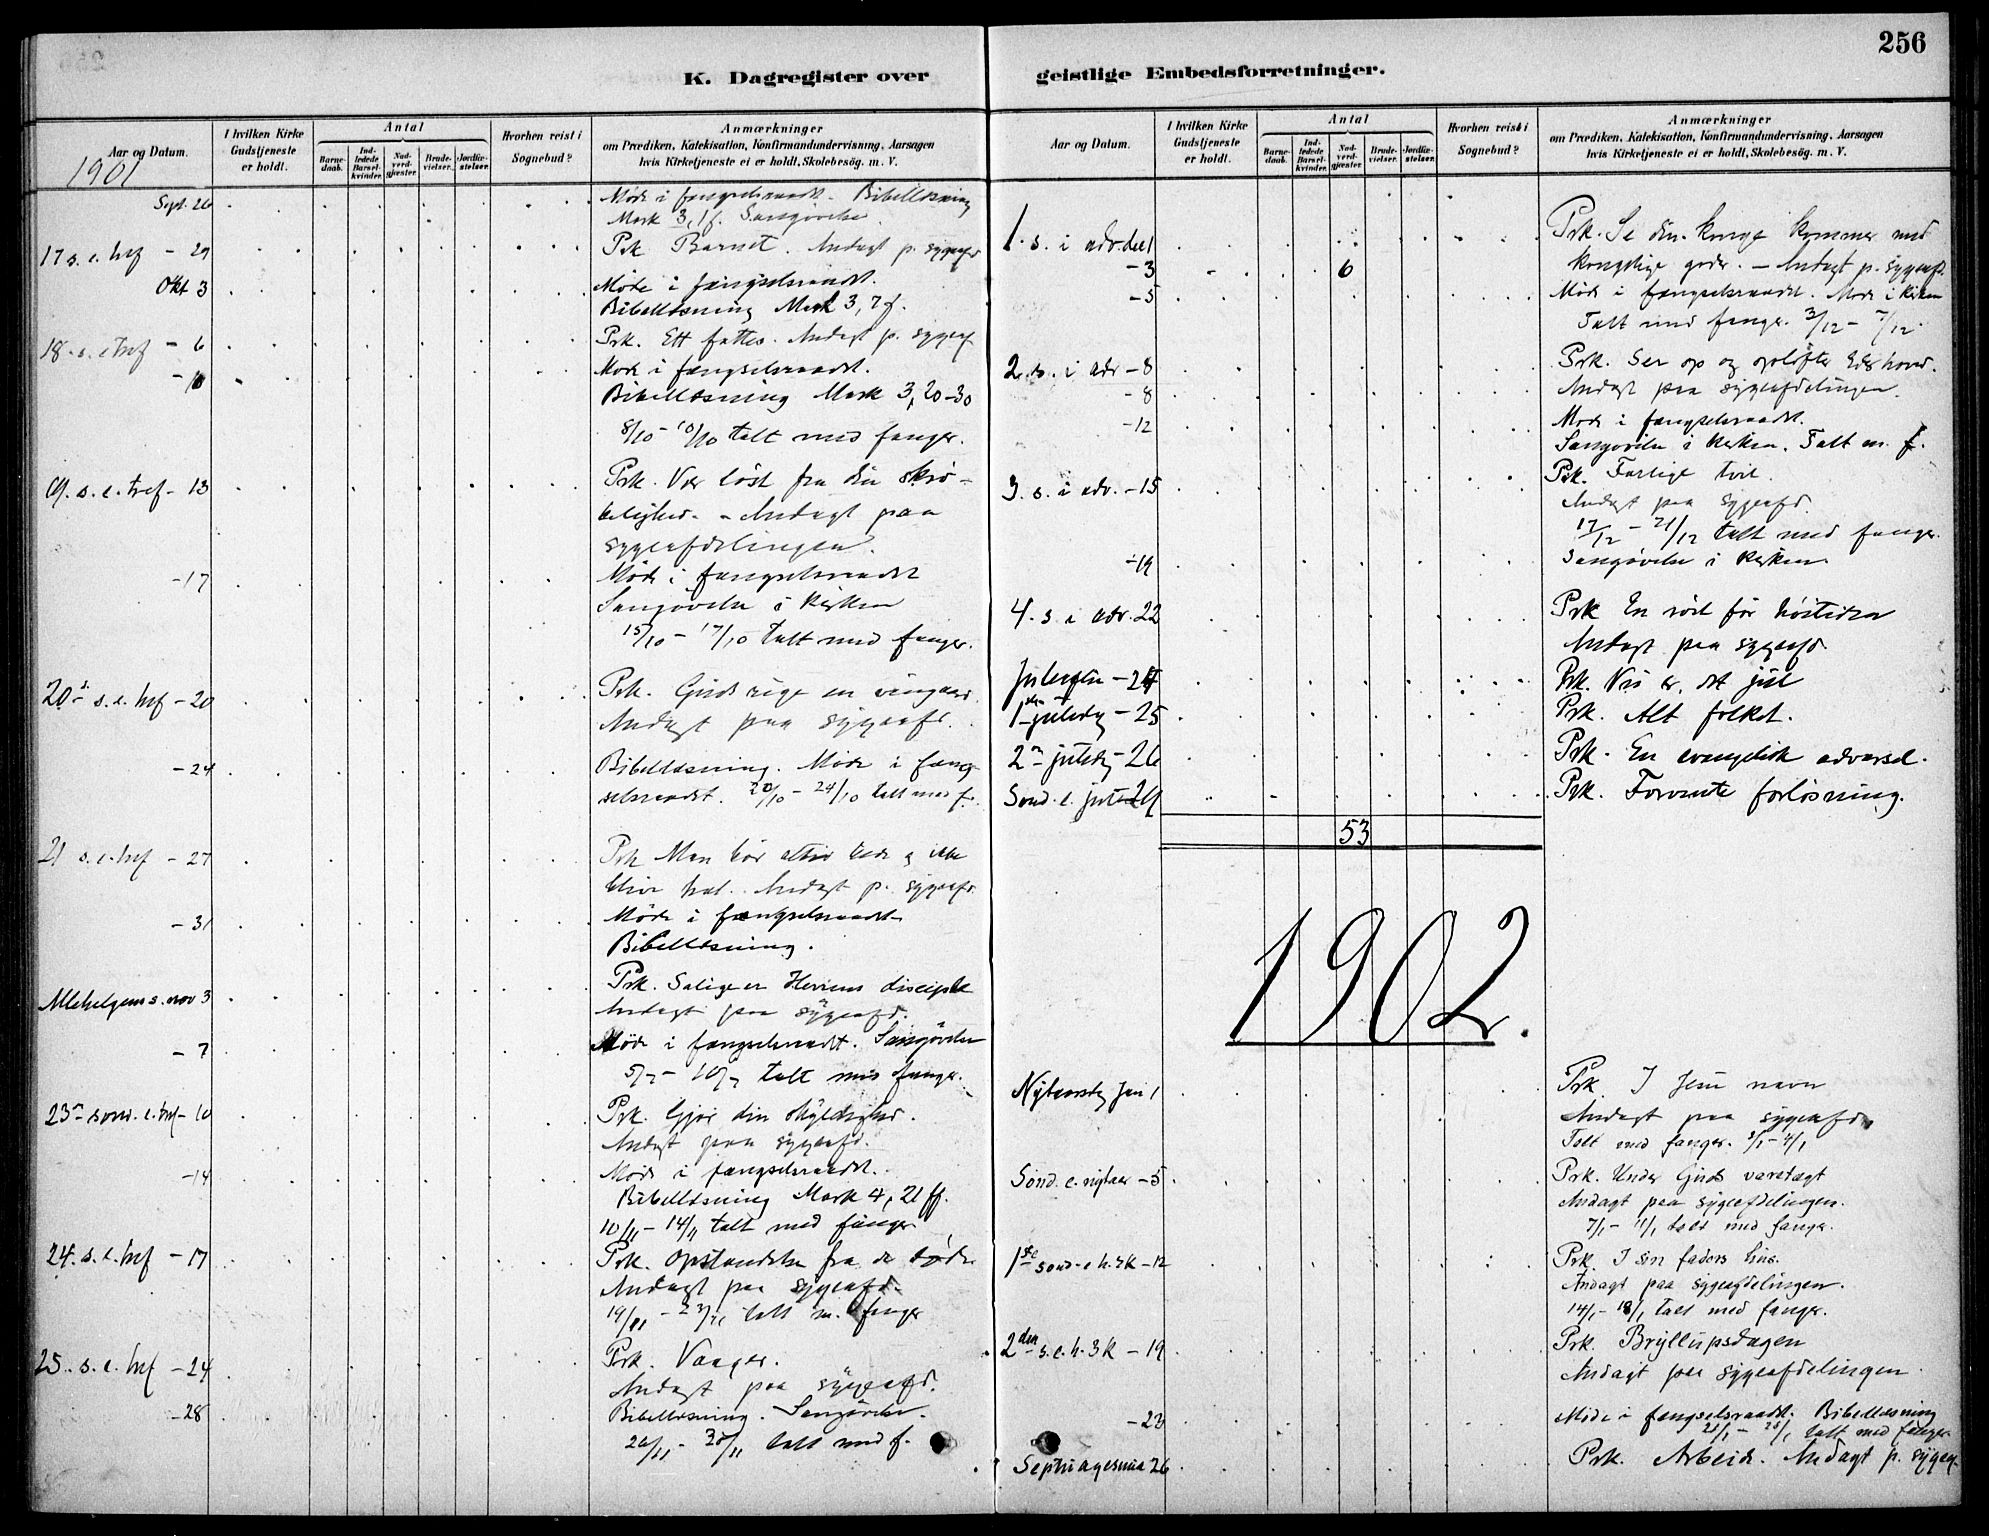 256
K. Dagregister over
geistlige Embedsforretninger.
Aar og Datum.
1901
I hvilken Kirke
Gudstjeneste
er holdt.
Antal
Barne-
daab.
Ind-
ledede
Barsel-
kvinder.
Nad-
verd-
gjæster.
Brude-
vielser.
Jordfæ-
stelser.
Hvorhen reist i
Sognebud?
Anmærkninger
om Prædiken, Katekisation, Konfirmandundervisning, Aarsagen
hvis Kirketjeneste ei er holdt, Skolebesøg. m. V.
Sept. 26 Møde i fængselsraadet. Bibellæsning
Mark 3, 1 f. Sangøvelse
17 s. e. tref – 29 Prk Barnet. Andagt p. sygeafd
Okt 3 Møde i fængselsraadet.
Bibellæsning Mark 3, 7 f.
18. s. e. tref – 6 Prk. Ett fattes. Andagt p. sygeaf
– 10 Møde i fængselsraadet.
Bibellæsning Mark 3, 20–30
8/10 – 10/10 talt med fanger.
19. s. e. tref – 13 Prk. Vær løst fra din skrø-
belighed. – Andagt paa
sygeafdelingen.
– 17 Møde i fængselsraadet
Sangøvelse i kirken
15/10 – 17/10 talt med fanger.
20 s. e. tref – 20 Prk. Guds rige en vingaard
Andagt paa sygeafd.
– 24 Bibellæsning. Møde i fæng-
selsraadet. 20/10 – 24/10 talt med f.
21 s. e. tref – 27 Prk Man bør altid bede og ikke
blive træt. Andagt p. sygeafd.
– 31 Møde i fængselsraadet
Bibellæsning.
Allehelgens s. nov 3 Prk. Salige er Herrens disciple
Andagt paa sygeafd.
– 7 Møde i fængselsraadet. Sangøvelse
talt med fanger.
23 sond. e. tref – 10 Prk. Gjør din skyldighed.
Andagt paa sygeafd.
– 14 Møde i fængselsraadet.
Bibellæsning Mark 4, 21 ff.
10/11 – 14/11 talt med fanger
24. s. e. tref – 17 Prk. Opstandelse fra de døde
Andagt paa sygeafd.
19/11 – 23/11 talt m. fanger
25. s. e. tref – 24 Prk. Vaager.
Andagt paa sygeafd.
– 28 Bibellæsning. Sangøvelse.
26/11 – 30/11 talt med f.
Aar og Datum.
I hvilken Kirke
Gudstjeneste
er holdt.
Antal
Barne-
daab.
Ind-
ledede
Barsel-
kvinder.
Nad-
verd-
gjæster.
Brude-
vielser.
Jordfæ-
stelser.
Hvorhen reist i
Sognebud?
Anmærkninger
om Prædiken, Katekisation, Konfirmandundervisning, Aarsagen
hvis Kirketjeneste ei er holdt, Skolebesøg. m. V.
1. s. i adv. dec 1 Prk. Se din konge kommer med
– 3 6 kongelige gaver. – Andagt p. sygeafd.
– 5 Møde i fængselsraadet. Møde i kirken
Talt med fanger. 3/12 – 7/12.
2. s. i adv – 8 Prk. Ser op og opløfter Eders hoved.
– 8 Andagt paa sygeafdelingen.
– 12 Møde i fængselsraadet.
Sangøvelse i kirken. Talt m. f.
3. s. i adv. – 15 Prk. Farlige tvil.
Andagt paa sygeafd.
17/12 – 21/12 talt med fanger.
– 19 Sangøvelse i kirken.
4. s. i adv. 22 Prk En røst før høitiden
Andagt paa sygeafd.
Juleaften – 24 Prk. Nu er det jul
1ste juledag – 25 Prk. Alt folket.
2n juledag – 26 Prk. En evangelisk advarsel.
Sond. e. jul 29 Prk. Forvente forløsning.
53
1902.
Nytaarsdag Jan 1 Prk. I Jesu navn
Andagt paa sygeafd.
Talt med fanger. 3/1 – 4/1
Sond. e. nytaar – 5 Prk. Under Guds varetægt
Andagt paa sygeafdelingen.
7/1 – 11/1 talt med fanger.
1ste sond. e. h. 3 K – 12 Prk. I sin faders hus.
Andagt paa sygeafdelingen.
14/1 – 18/1 talt med fanger.
2den s. e. h. 3 K – 19 Prk. Bryllupsdagen
Andagt paa sygeafdelingen
– 23 Møde i fængselsraadet. Bibellæsning
21/1 – 25/1 talt med fanger
Septuagesima 26 Prk. Arbeid. Andagt p. sygeaf.